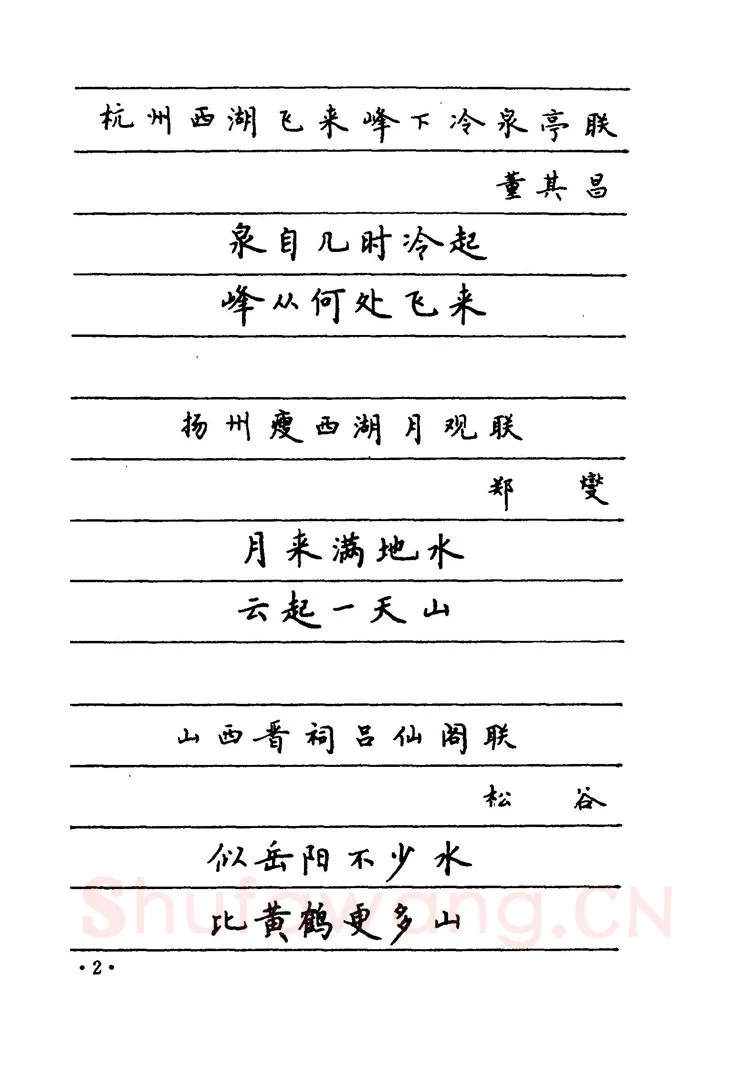 杭州西湖飞来峰下冷泉亭联
董其昌
泉自几时冷起
峰从何处飞来
扬州瘦西湖月观联
郑 燮
月来满地水
云起一天山
山西晋祠吕仙阁联
松 谷
似岳阳不少水
比黄鹤更多山
Shufawang.CN
·2·